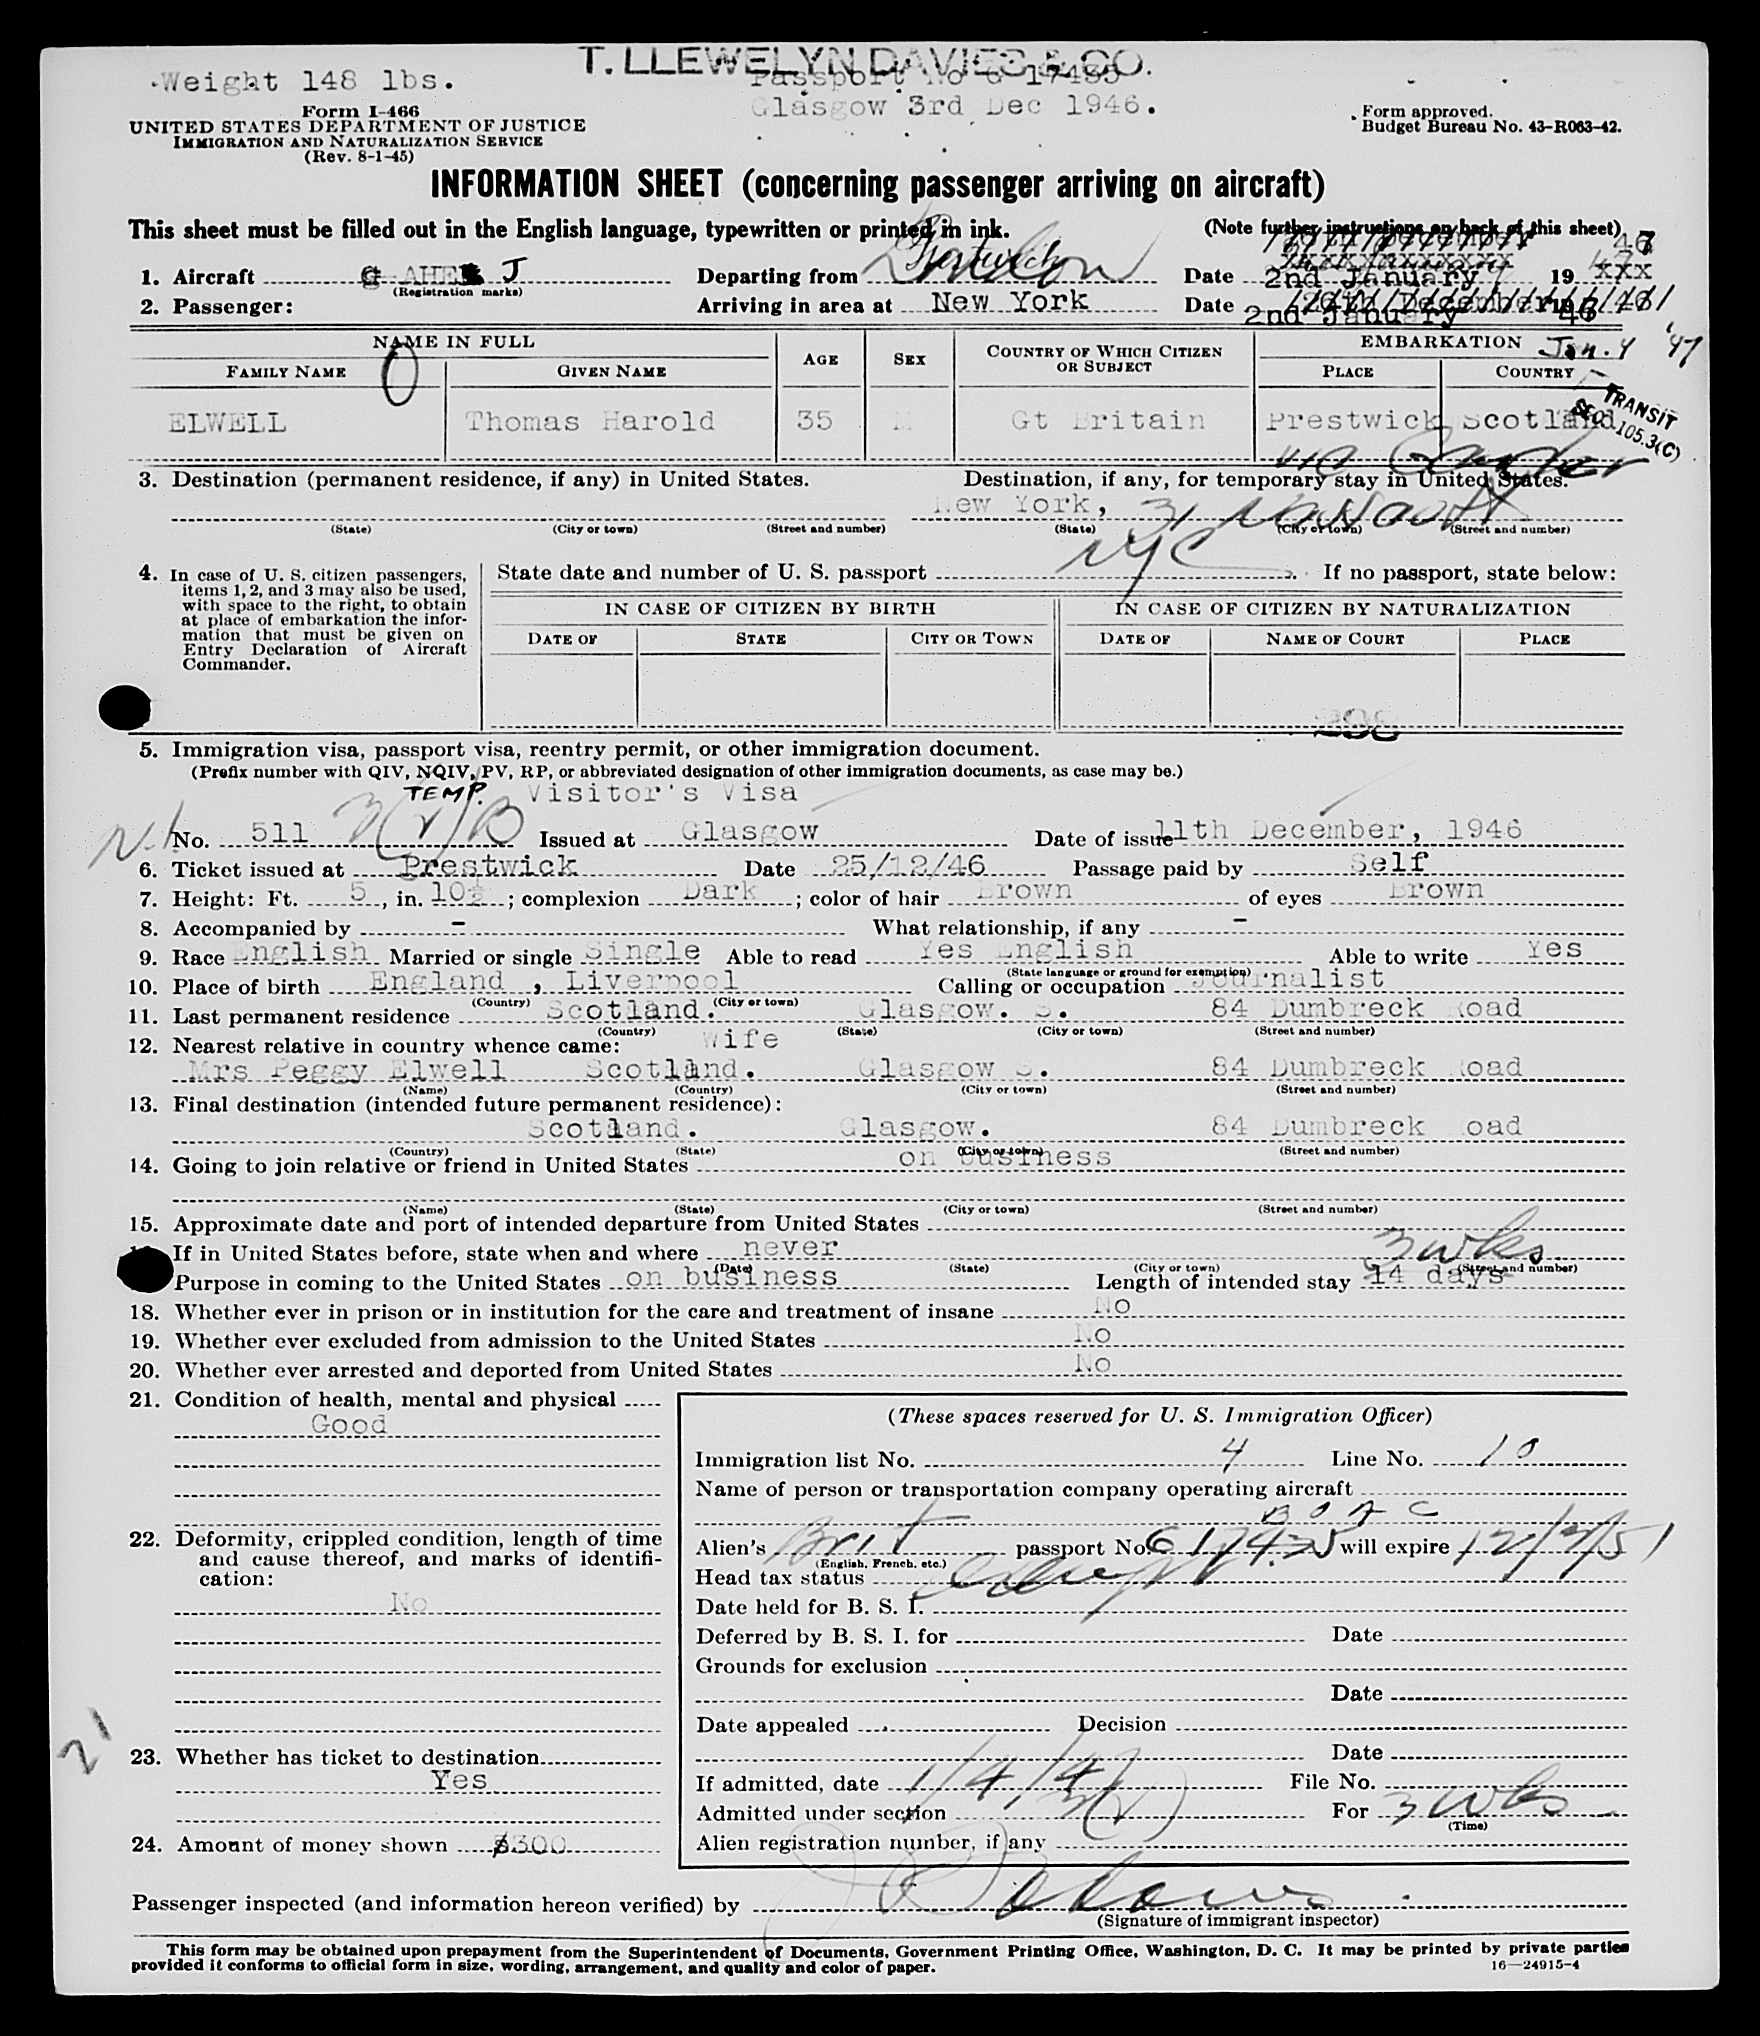 T. LLEWELYN DAVIES & CO.
Weight 148 lbs.
Passport No C 17435
Glasgow 3rd Dec 1946.
Form I-466
UNITED STATES DEPARTMENT OF JUSTICE
IMMIGRATION AND NATURALIZATION SERVICE
(Rev. 8-1-45)
Form approved.
Budget Bureau No. 43-R063-42.
INFORMATION SHEET (concerning passenger arriving on aircraft)
This sheet must be filled out in the English language, typewritten or printed in ink.
(Note further instructions on back of this sheet)
Prestwick
1. Aircraft G AHE J Departing from London Date 2nd January 19 47
(Registration marks)
2. Passenger: Arriving in area at New York Date 26th December 19
2nd January 47
NAME IN FULL AGE SEX COUNTRY OF WHICH CITIZEN OR SUBJECT EMBARKATION Jan. 4 '47
FAMILY NAME GIVEN NAME PLACE COUNTRY
TRANSIT
SEC. 105.3(C)
ELWELL Thomas Harold 35 M Gt Britain Prestwick Scotland
via Gander
3. Destination (permanent residence, if any) in United States. Destination, if any, for temporary stay in United States.
New York, 31 Nassau St
(State) (City or town) (Street and number) (State) (City or town) (Street and number)
NYC
4. In case of U. S. citizen passengers, items 1, 2, and 3 may also be used, with space to the right, to obtain at place of embarkation the information that must be given on Entry Declaration of Aircraft Commander.
State date and number of U. S. passport If no passport, state below:
IN CASE OF CITIZEN BY BIRTH IN CASE OF CITIZEN BY NATURALIZATION
DATE OF STATE CITY OR TOWN DATE OF NAME OF COURT PLACE
298
5. Immigration visa, passport visa, reentry permit, or other immigration document.
(Prefix number with QIV, NQIV, PV, RP, or abbreviated designation of other immigration documents, as case may be.)
TEMP. Visitor's Visa
N.I. No. 511 3(2)B Issued at Glasgow Date of issue 11th December, 1946
6. Ticket issued at Prestwick Date 25/12/46 Passage paid by Self
7. Height: Ft. 5, in. 10½; complexion Dark; color of hair Brown of eyes Brown
8. Accompanied by - What relationship, if any -
9. Race English Married or single Single Able to read Yes English Able to write Yes
(State language or ground for exemption)
10. Place of birth England, Liverpool Calling or occupation Journalist
(Country) (City or town)
11. Last permanent residence Scotland. Glasgow. S. 84 Dumbreck Road
(Country) (State) (City or town) (Street and number)
12. Nearest relative in country whence came: Wife
Mrs Peggy Elwell Scotland. Glasgow S. 84 Dumbreck Road
(Name) (Country) (City or town) (Street and number)
13. Final destination (intended future permanent residence):
Scotland. Glasgow. 84 Dumbreck Road
(Country) (State) (City or town) (Street and number)
14. Going to join relative or friend in United States on business
(Name) (State) (City or town) (Street and number)
15. Approximate date and port of intended departure from United States
If in United States before, state when and where never 3 wks
(Date) (State) (City or town) (Street and number)
Purpose in coming to the United States on business Length of intended stay 14 days
18. Whether ever in prison or in institution for the care and treatment of insane No
19. Whether ever excluded from admission to the United States No
20. Whether ever arrested and deported from United States No
21. Condition of health, mental and physical
Good
22. Deformity, crippled condition, length of time and cause thereof, and marks of identification:
No
21
23. Whether has ticket to destination
Yes
24. Amount of money shown $300
(These spaces reserved for U. S. Immigration Officer)
Immigration list No. 4 Line No. 10
Name of person or transportation company operating aircraft
B O A C
Alien's Brit passport No. C 17435 will expire 12/3/51
(English, French, etc.)
Head tax status Exempt
Date held for B. S. I.
Deferred by B. S. I. for Date
Grounds for exclusion
Date
Date appealed Decision
Date
If admitted, date 1/4/47 File No.
Admitted under section 3(2) For 3 wks
(Time)
Alien registration number, if any
Passenger inspected (and information hereon verified) by
(Signature of immigrant inspector)
This form may be obtained upon prepayment from the Superintendent of Documents, Government Printing Office, Washington, D. C. It may be printed by private parties
provided it conforms to official form in size, wording, arrangement, and quality and color of paper.
16—24915-4